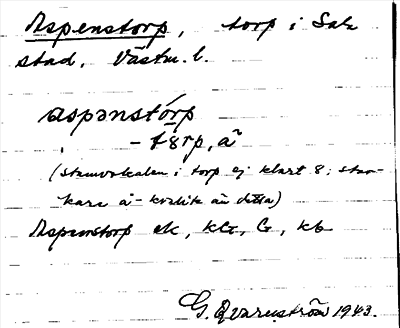 Aspenstorp, torp i Sala
stad, Västm. l.
aspənstórp
- t8rp, å
(stamvokalen i torp ej klart 8; star-
kare å-kvalité än detta)
Aspenstorp ek, kG, G, kb
G. Qvarnström 1943.